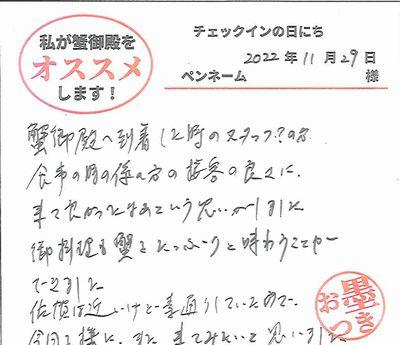 私が蟹御殿を
オススメ
します!
チェックインの日にち
2022年11月29日
ペンネーム 様
蟹御殿へ到着した時のスタッフの方
食事の時の係の方の接客の良さに、
来て良かったなあという思いがしました
御料理も蟹をたっぷりと味わうことが
できました
佐賀は近いけど一素通りしていたので、
今回を機に、また来てみたいと思いました
お墨つき